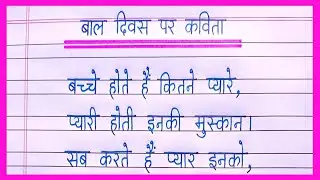 बाल दिवस पर कविता
बच्चे होते हैं कितने प्यारे,
प्यारी होती इनकी मुस्कान।
सब करते हैं प्यार इनको,